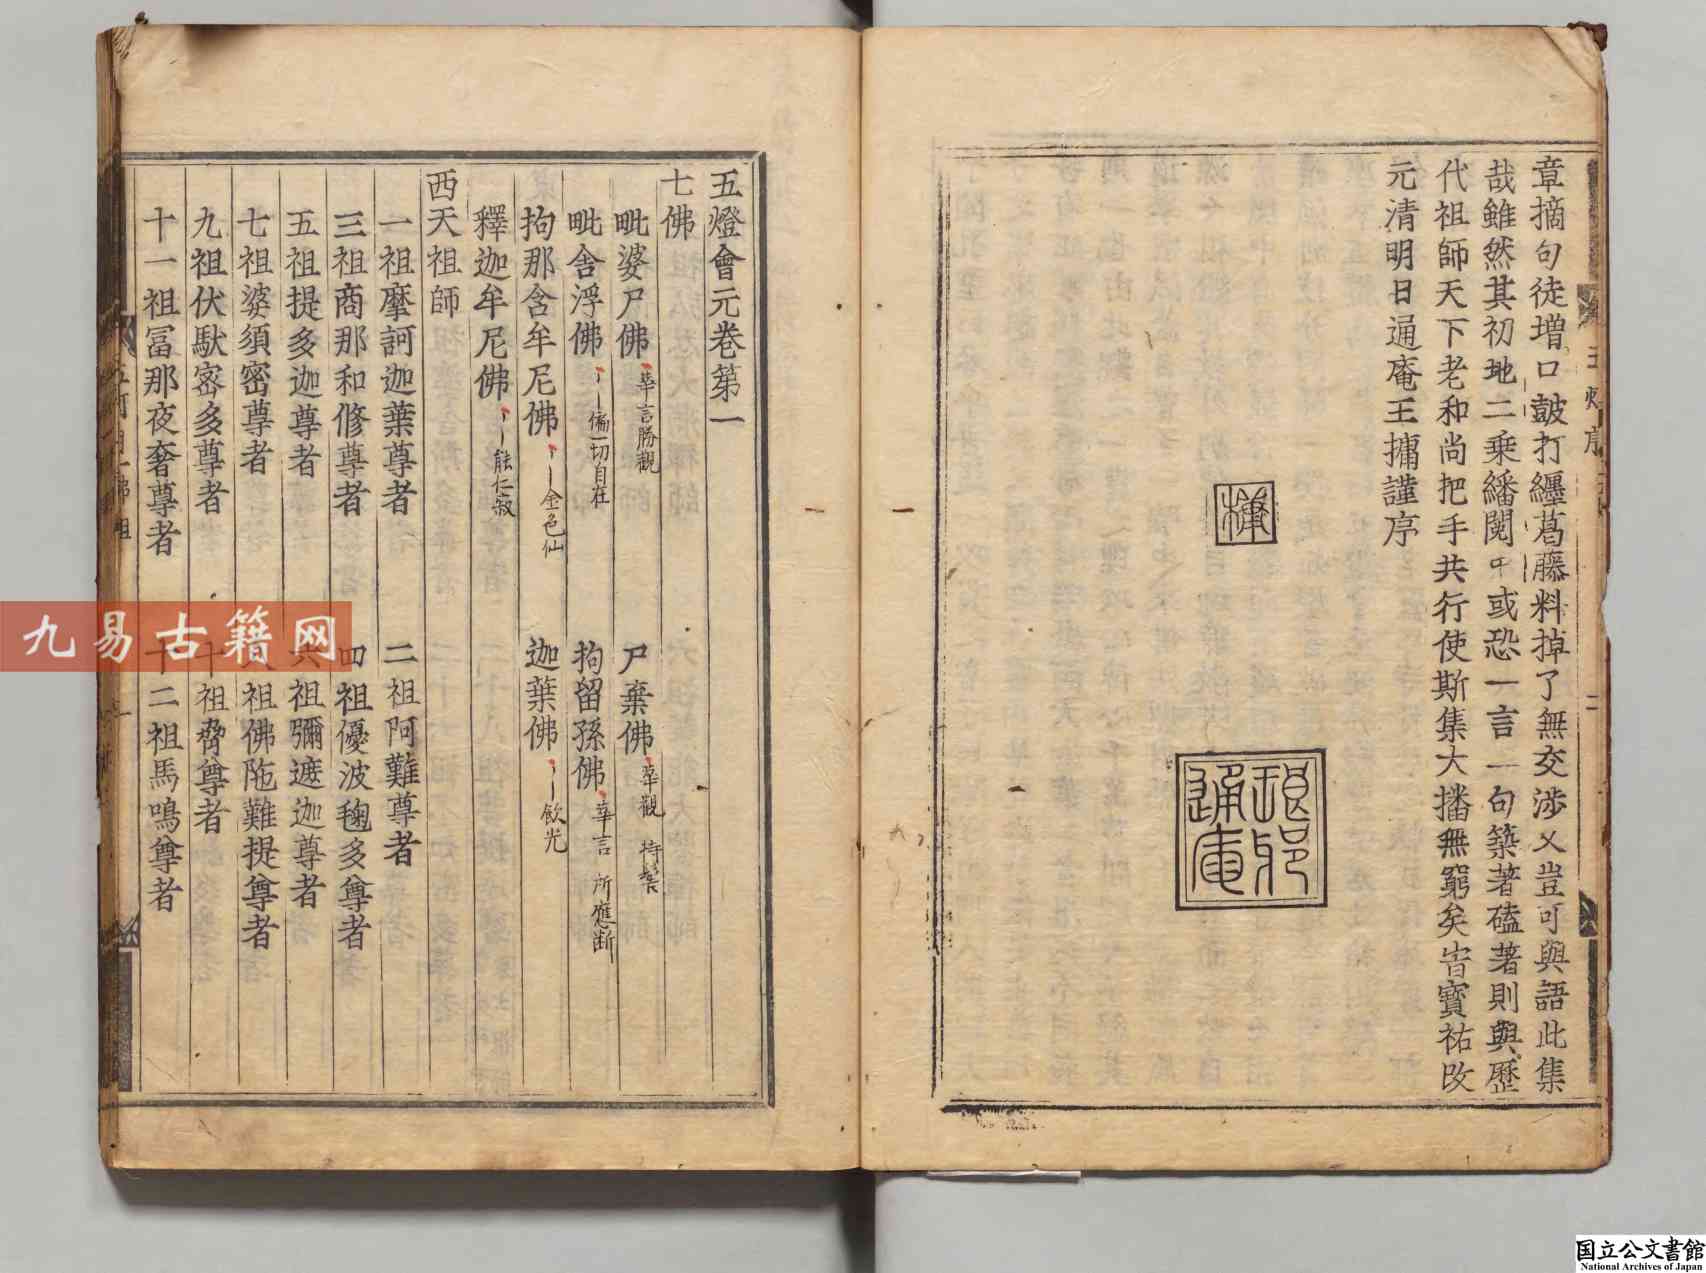 章摘句徒增口皷打纏葛藤料掉了無交渉乂豈可與語此集
哉雖然其初地二乗繙閱中或恐一言一句築著磕著則與歷
代祖師天下老和尚把手共行使斯集大播無窮矣旹寶祐改
元清明日通庵王𢡟謹序
通庵
五燈會元卷第一
七佛
毗婆尸佛 華言勝觀 尸棄佛
毗舍浮佛 徧一切自在 拘留孫佛 華言所應斷
拘那含牟尼佛 金色仙 迦葉佛 飲光
釋迦牟尼佛 能仁寂
西天祖師
一祖摩訶迦葉尊者 二祖阿難尊者
三祖商那和修尊者 四祖優波毱多尊者
五祖提多迦尊者 六祖彌遮迦尊者
七祖婆須密尊者 八祖佛陁難提尊者
九祖伏馱宻多尊者 十祖脅尊者
十一祖冨那夜奢尊者 十二祖馬鳴尊者
九易古籍网
国立公文書館
National Archives of Japan